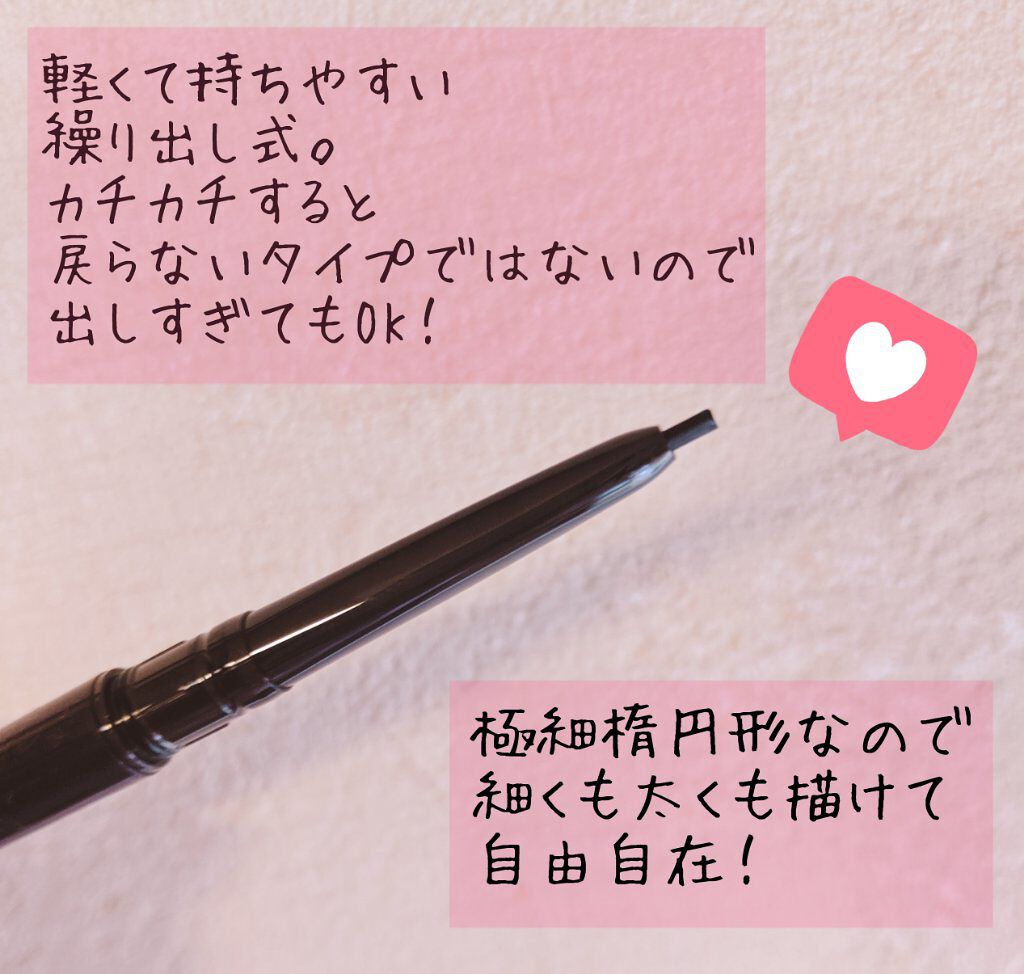 軽くて持ちやすい
繰り出し式。
カチカチすると
戻らないタイプではないので
出しすぎてもOK!
極細楕円形なので
細くも太くも描けて
自由自在!